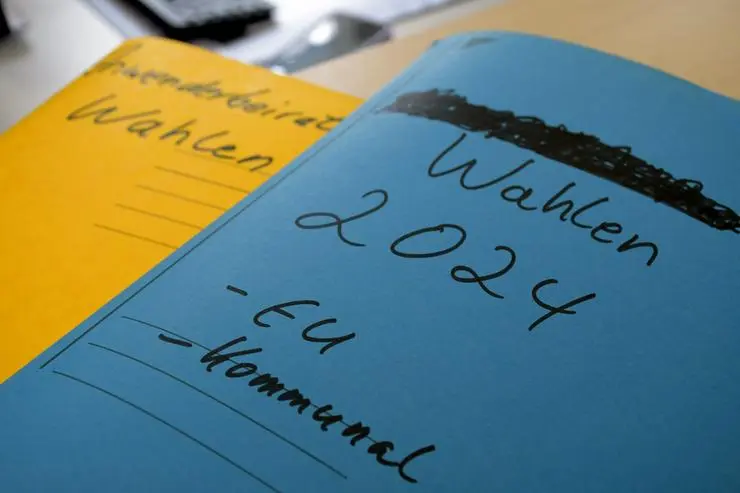 Anwenderbeirat
Wahlen
Wahlen
2024
- EU
- Kommunal